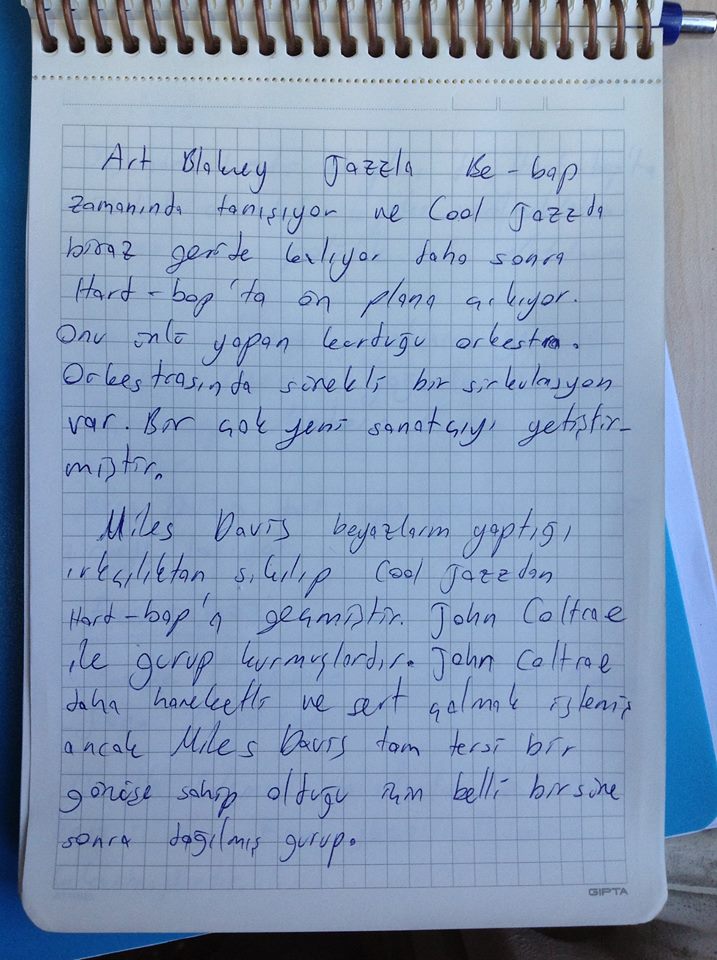 Art Blakey Jazzla Be-bap
zamanında tanışıyor ve Cool Jazzda
biraz geride kalıyor daha sonra
Hard-bap'ta ön plana çıkıyor.
Onu ünlü yapan kurduğu orkestra.
Orkestrasında sürekli bir sirkulasyon
var. Bir çok yeni sanatçıyı yetiştir-
miştir.
Miles Davis beyazların yaptığı
ırkçılıktan sıkılıp Cool Jazzdan
Hard-bap'a geçmiştir. John Coltrae
ile gurup kurmuşlardır. John Coltrae
daha hareketli ve sert çalmak istemiş
ancak Miles Davis tam tersi bir
görüşe sahip olduğu için belli bir süre
sonra dağılmış gurup.
GIPTA